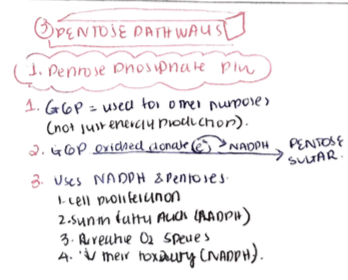 ③ PENTOSE PATHWAYS
1. Pentose Phosphate
1. G6P = used for other purposes
(not just energy production).
2. G6P oxidised donate (e⁻) → NADPH → PENTOSE
SUGAR.
3. Uses NADPH & Pentoses.
1. cell proliferation
2. fatty Acids (NADPH)
3. Reactive O2 Species
4. ↓ their toxicity (NADPH).